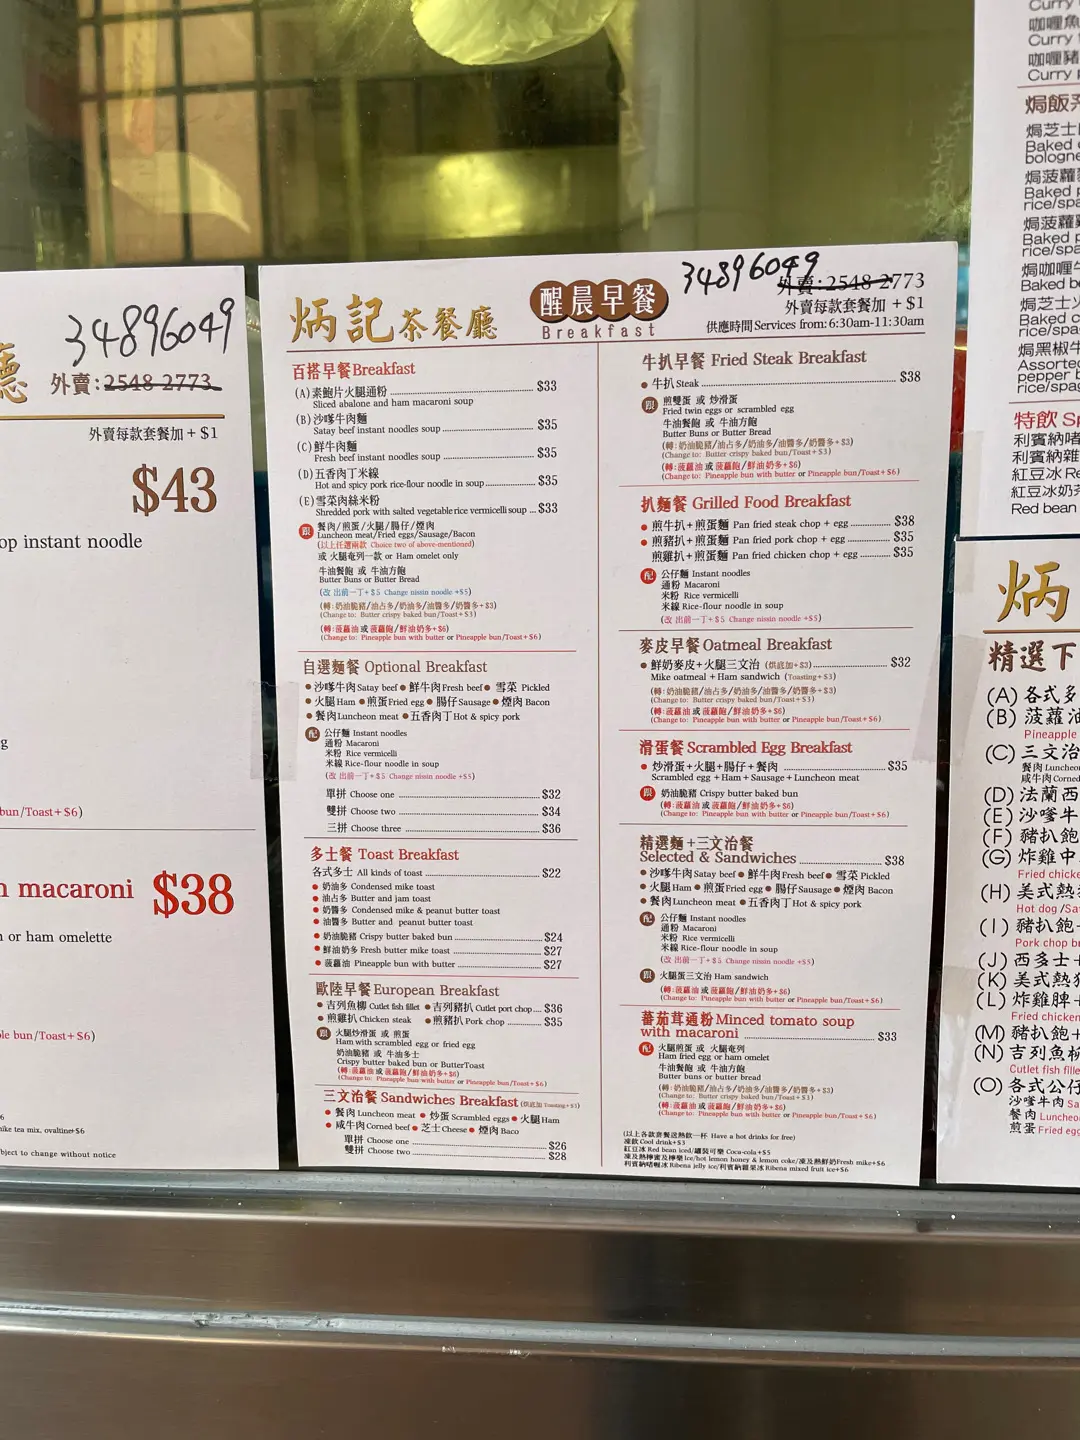 34896049
外賣:2548 2773
外賣每款套餐加 + $1
$43
op instant noodle
bun/Toast + $6)
n macaroni $38
n or ham omelette
le bun/Toast + $6)
ike tea mix, ovaltine+$6
bject to change without notice
炳記茶餐廳
醒晨早餐
Breakfast
34896049
外賣:2548 2773
外賣每款套餐加 + $1
供應時間 Services from: 6:30am-11:30am
百搭早餐 Breakfast
(A) 素鮑片火腿通粉 $33
Sliced abalone and ham macaroni soup
(B) 沙嗲牛肉麵
Satay beef instant noodles soup $35
(C) 鮮牛肉麵
Fresh beef instant noodles soup $35
(D) 五香肉丁米線
Hot and spicy pork rice-flour noodle in soup $35
(E) 雪菜肉絲米粉
Shredded pork with salted vegetable rice vermicelli soup $33
跟 餐肉/煎蛋/火腿/腸仔/煙肉
Luncheon meat/Fried eggs/Sausage/Bacon
(以上任選兩款 Choice two of above-mentioned)
或 火腿奄列一款 or Ham omelet only
牛油餐飽 或 牛油方飽
Butter Buns or Butter Bread
(改 出前一丁+$5 Change nissin noodle +$5)
(轉:奶油脆豬/油占多/奶油多/油醬多/奶醬多+$3)
(Change to: Butter crispy baked bun/Toast+$3)
(轉:菠蘿油 或 菠蘿飽/鮮油奶多+$6)
(Change to: Pineapple bun with butter or Pineapple bun/Toast+$6)
自選麵餐 Optional Breakfast
● 沙嗲牛肉 Satay beef ● 鮮牛肉 Fresh beef ● 雪菜 Pickled
● 火腿 Ham ● 煎蛋 Fried egg ● 腸仔 Sausage ● 煙肉 Bacon
● 餐肉 Luncheon meat ● 五香肉丁 Hot & spicy pork
配 公仔麵 Instant noodles
通粉 Macaroni
米粉 Rice vermicelli
米線 Rice-flour noodle in soup
(改 出前一丁+$5 Change nissin noodle +$5)
單拼 Choose one $32
雙拼 Choose two $34
三拼 Choose three $36
多士餐 Toast Breakfast
各式多士 All kinds of toast $22
● 奶油多 Condensed mike toast
● 油占多 Butter and jam toast
● 奶醬多 Condensed mike & peanut butter toast
● 油醬多 Butter and peanut butter toast
● 奶油脆豬 Crispy butter baked bun $24
● 鮮油奶多 Fresh butter mike toast $27
● 菠蘿油 Pineapple bun with butter $27
歐陸早餐 European Breakfast
● 吉列魚柳 Cutlet fish fillet ● 吉列豬扒 Cutlet port chop $36
● 煎雞扒 Chicken steak ● 煎豬扒 Pork chop $35
跟 火腿炒滑蛋 或 煎蛋
Ham with scrambled egg or fried egg
奶油脆豬 或 牛油多士
Crispy butter baked bun or ButterToast
(轉:菠蘿油 或 菠蘿飽/鮮油奶多+$6)
(Change to: Pineapple bun with butter or Pineapple bun/Toast+$6)
三文治餐 Sandwiches Breakfast (烘底加 Toasting+$3)
● 餐肉 Luncheon meat ● 炒蛋 Scrambled eggs ● 火腿 Ham
● 咸牛肉 Corned beef ● 芝士 Cheese ● 煙肉 Baco
單拼 Choose one $26
雙拼 Choose two $28
牛扒早餐 Fried Steak Breakfast
● 牛扒 Steak $38
跟 煎雙蛋 或 炒滑蛋
Fried twin eggs or scrambled egg
牛油餐飽 或 牛油方飽
Butter Buns or Butter Bread
(轉:奶油脆豬/油占多/奶油多/油醬多/奶醬多+$3)
(Change to: Butter crispy baked bun/Toast+$3)
(轉:菠蘿油 或 菠蘿飽/鮮油奶多+$6)
(Change to: Pineapple bun with butter or Pineapple bun/Toast+$6)
扒麵餐 Grilled Food Breakfast
● 煎牛扒+煎蛋麵 Pan fried steak chop + egg $38
● 煎豬扒+煎蛋麵 Pan fried pork chop + egg $35
煎雞扒+煎蛋麵 Pan fried chicken chop + egg $35
配 公仔麵 Instant noodles
通粉 Macaroni
米粉 Rice vermicelli
米線 Rice-flour noodle in soup
(改 出前一丁+$5 Change nissin noodle +$5)
麥皮早餐 Oatmeal Breakfast
● 鮮奶麥皮+火腿三文治 (烘底加+$3) $32
Mike oatmeal + Ham sandwich (Toasting+$3)
(轉:奶油脆豬/油占多/奶油多/油醬多/奶醬多+$3)
(Change to: Butter crispy baked bun/Toast+$3)
(轉:菠蘿油 或 菠蘿飽/鮮油奶多+$6)
(Change to: Pineapple bun with butter or Pineapple bun/Toast+$6)
滑蛋餐 Scrambled Egg Breakfast
● 炒滑蛋+火腿+腸仔+餐肉 $35
Scrambled egg + Ham + Sausage + Luncheon meat
跟 奶油脆豬 Crispy butter baked bun
(轉:菠蘿油 或 菠蘿飽/鮮油奶多+$6)
(Change to: Pineapple bun with butter or Pineapple bun/Toast+$6)
精選麵+三文治餐
Selected & Sandwiches $38
● 沙嗲牛肉 Satay beef ● 鮮牛肉 Fresh beef ● 雪菜 Pickled
● 火腿 Ham ● 煎蛋 Fried egg ● 腸仔 Sausage ● 煙肉 Bacon
● 餐肉 Luncheon meat ● 五香肉丁 Hot & spicy pork
配 公仔麵 Instant noodles
通粉 Macaroni
米粉 Rice vermicelli
米線 Rice-flour noodle in soup
(改 出前一丁+$5 Change nissin noodle +$5)
跟 火腿蛋三文治 Ham sandwich
(轉:菠蘿油 或 菠蘿飽/鮮油奶多+$6)
(Change to: Pineapple bun with butter or Pineapple bun/Toast+$6)
蕃茄茸通粉 Minced tomato soup
with macaroni $33
配 火腿煎蛋 或 火腿奄列
Ham fried egg or ham omelet
牛油餐飽 或 牛油方飽
Butter buns or butter bread
(轉:奶油脆豬/油占多/奶油多/油醬多/奶醬多+$3)
(Change to: Butter crispy baked bun/Toast+$3)
(轉:菠蘿油 或 菠蘿飽/鮮油奶多+$6)
(Change to: Pineapple bun with butter or Pineapple bun/Toast+$6)
(以上各款套餐送熱飲一杯 Have a hot drinks for free)
凍飲 Cool drink+$3
紅豆冰 Red bean iced/罐裝可樂 Coca-cola+$5
凍及熱檸蜜及檸樂 Ice/hot lemon honey & lemon coke/凍及熱鮮奶 Fresh mike+$6
利賓納啫喱冰 Ribena jelly ice/利賓納雜果冰 Ribena mixed fruit ice+$6
咖喱魚
Curry
咖喱豬
Curry
焗飯
焗芝士
Baked
bologne
焗菠蘿
Baked
rice/spa
焗菠蘿
Baked
rice/spa
焗咖喱牛
Baked be
焗芝士
Baked
rice/spa
焗黑椒牛
Assorted
pepper b
rice/spag
特飲 Sp
利賓納啫
利賓納雜
紅豆冰 Re
紅豆冰奶
Red bean
炳
精選下
(A) 各式多
(B) 菠蘿油
Pineapple
(C) 三文治
餐肉 Luncheon
咸牛肉 Corned
(D) 法蘭西
(E) 沙嗲牛
(F) 豬扒飽
(G) 炸雞中
Fried chicke
(H) 美式熱
Hot dog /Sa
(I) 豬扒飽
Pork chop b
(J) 西多士+
(K) 美式熱
(L) 炸雞脾+
Fried chicken
(M) 豬扒飽+
(N) 吉列魚柳
Cutlet fish fille
(O) 各式公仔
沙嗲牛肉 Sa
餐肉 Luncheo
煎蛋 Fried egg